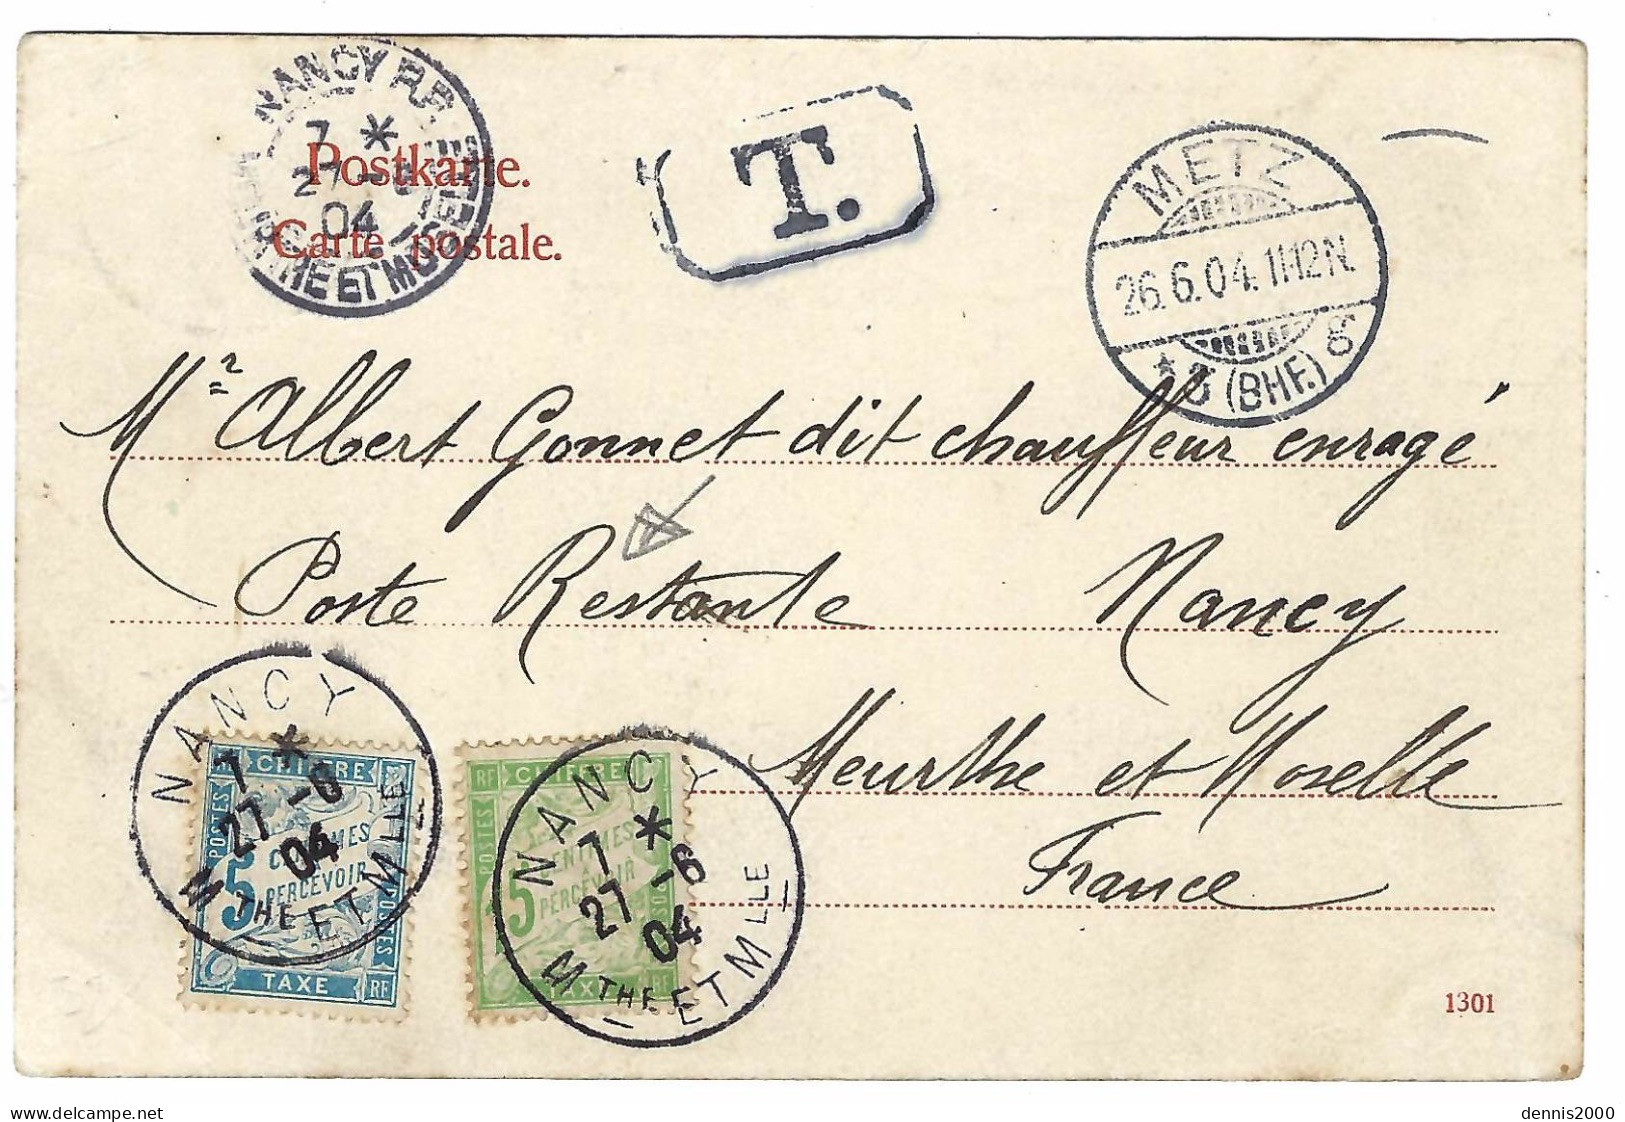 NANCY R.P.
7 *
04
MEURTHE ET MOSELLE
Postkarte.
Carte postale.
T.
METZ
26.6.04.11-12N.
* 5 (BHF.) g
Mr Albert Gonnet dit chauffeur enragé
Poste Restante Nancy
Meurthe et Moselle
France
NANCY
7 *
27 -6
04
MTHE ET MLLE
RF CHIFFRE
POSTES
5 CENTIMES
À
PERCEVOIR
POSTES
TAXE RF
NANCY
7 *
27 -6
04
MTHE ET MLLE
RF CHIFFRE
POSTES
CENTIMES
À
PERCEVOIR
TAXE RF
1301
dennis2000